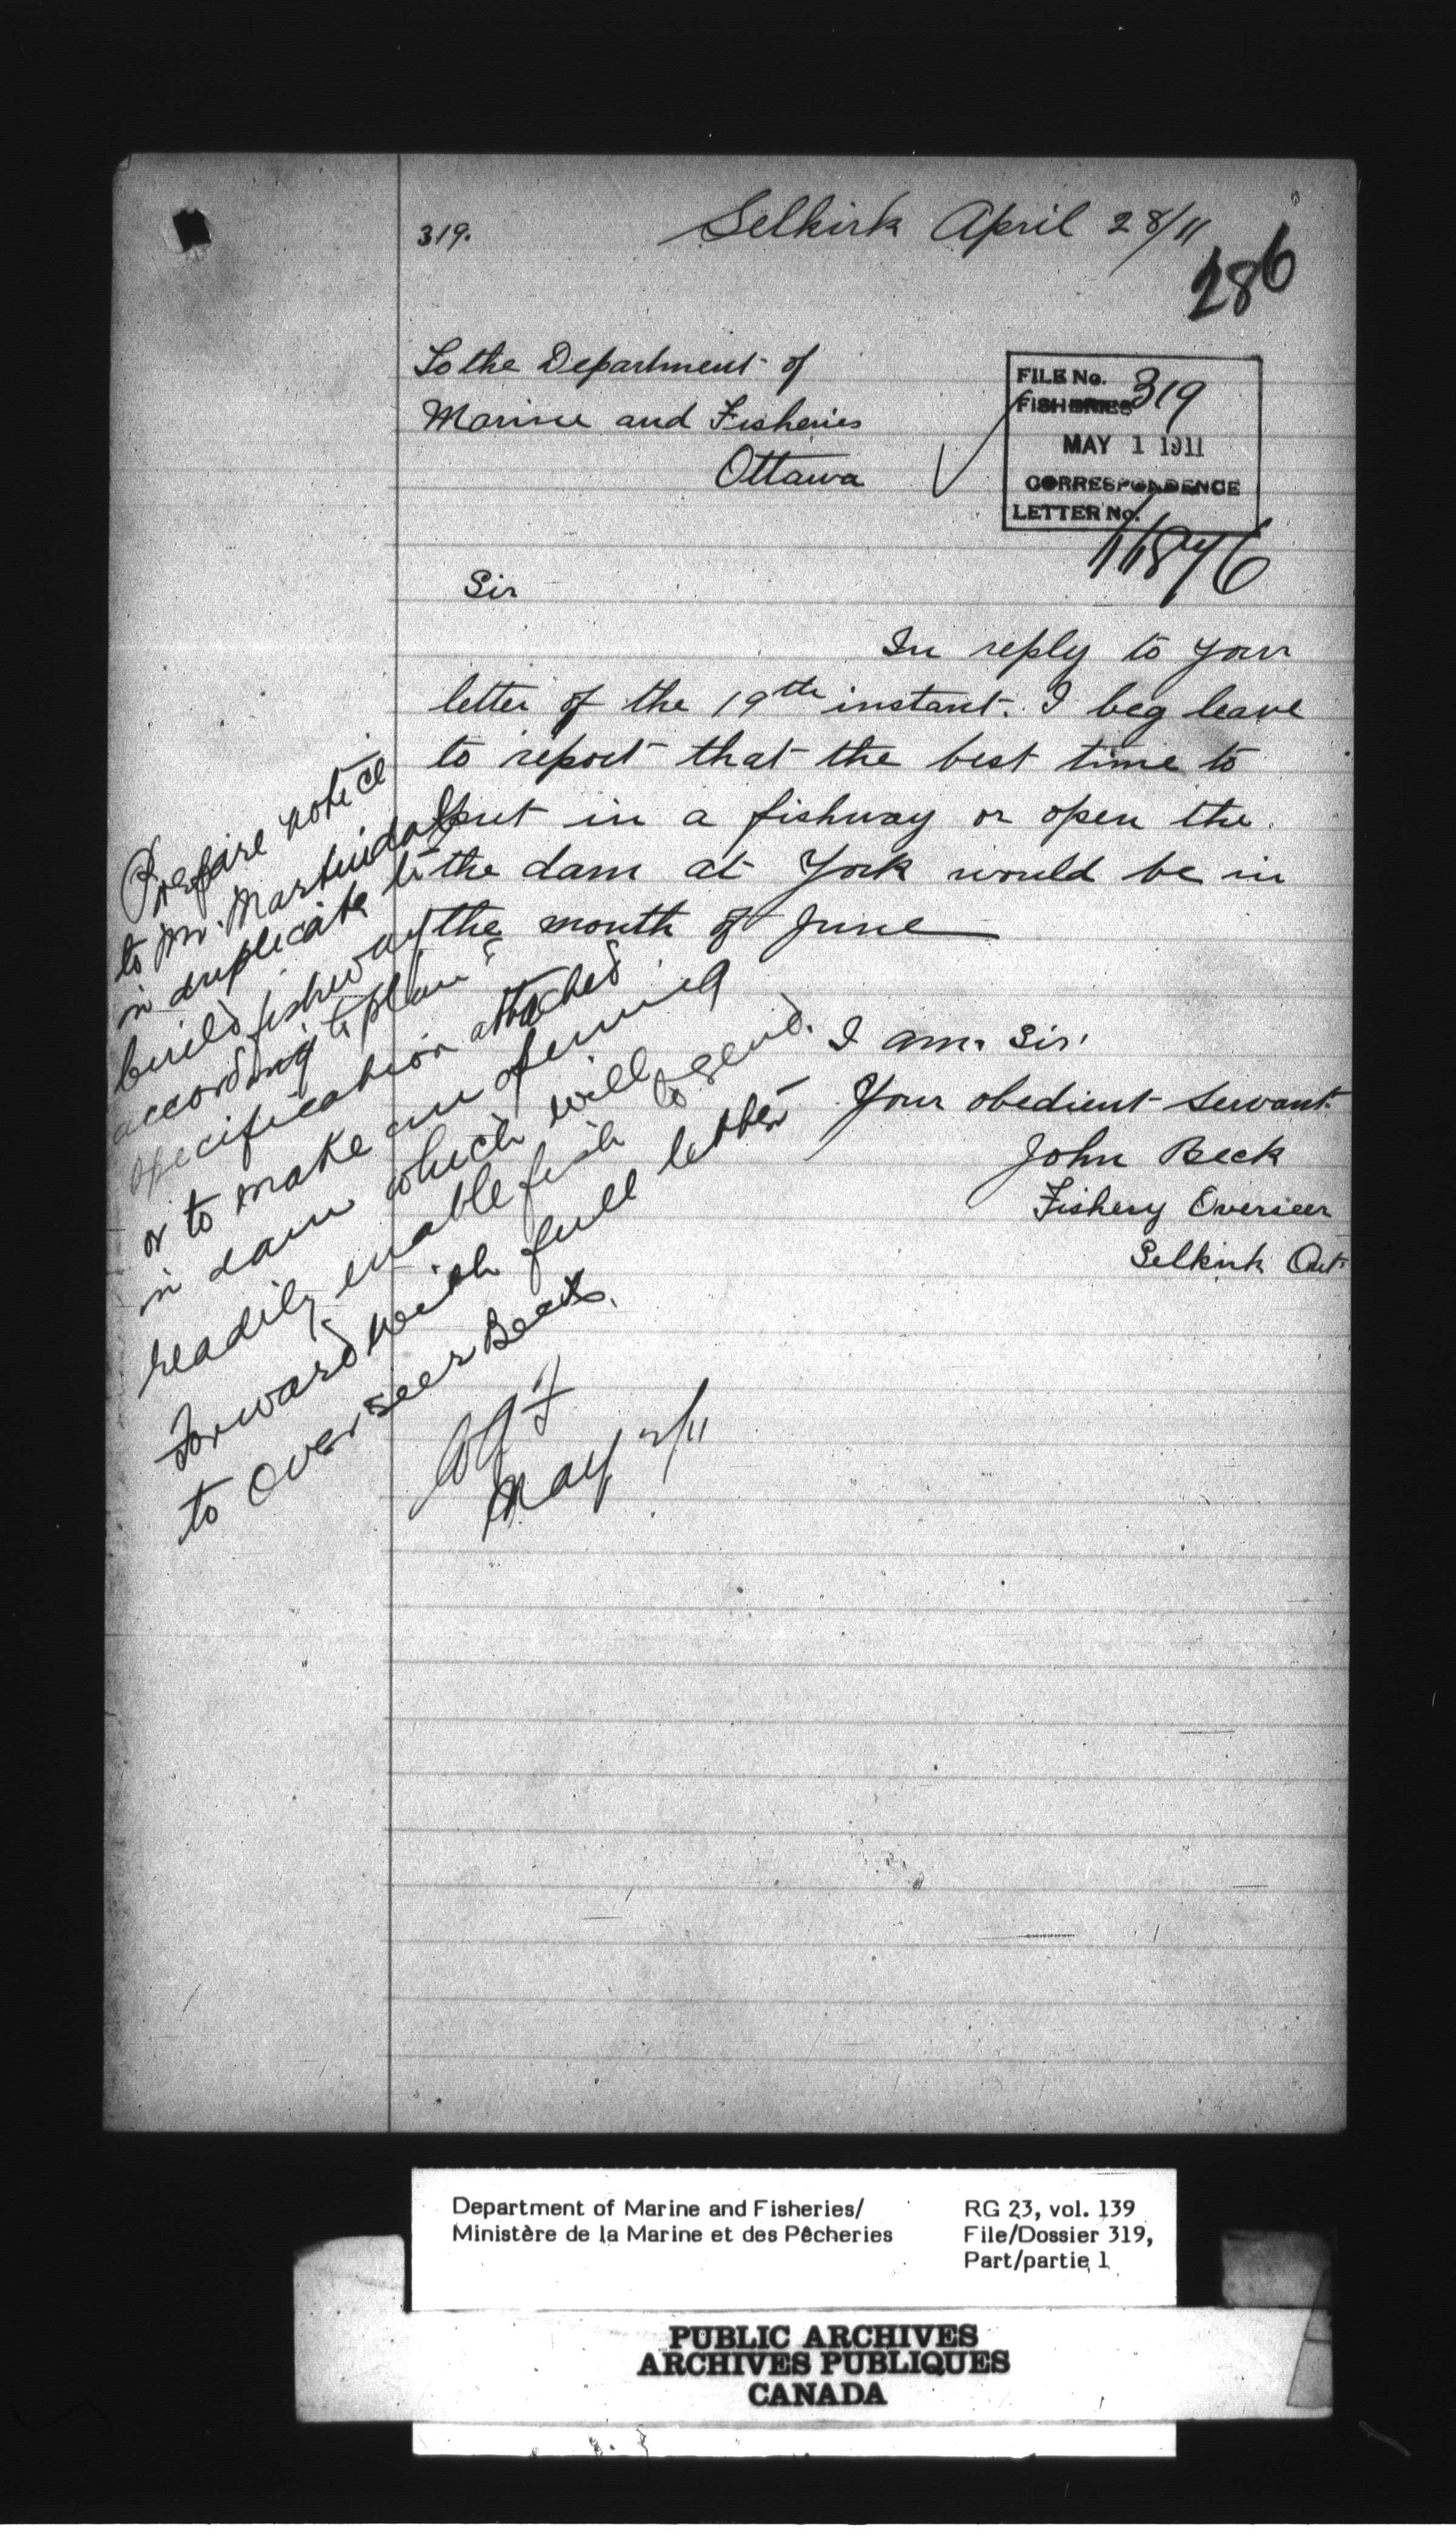 319.
Selkirk April 28/11
286
To the Department of
Marine and Fisheries
Ottawa
FILE No. 319
FISHERIES
MAY 1 1911
CORRESPONDENCE
LETTER No.
11876
Sir
In reply to your
letter of the 19th instant. I beg leave
to report that the best time to
put in a fishway or open the
the dam at York would be in
the month of June
I am. Sir.
Your obedient Servant.
John Beck
Fishery Overseer
Selkirk Ont.
Prepare notice
to Mr. Martindale
in duplicate to
build fishway
according to plan &
specification attached
or to make an opening
in dam which will
readily enable fish to
Forward with full letter
to Overseer Beck.
May 2/11
Department of Marine and Fisheries/
Ministère de la Marine et des Pêcheries
RG 23, vol. 139
File/Dossier 319,
Part/partie 1
PUBLIC ARCHIVES
ARCHIVES PUBLIQUES
CANADA